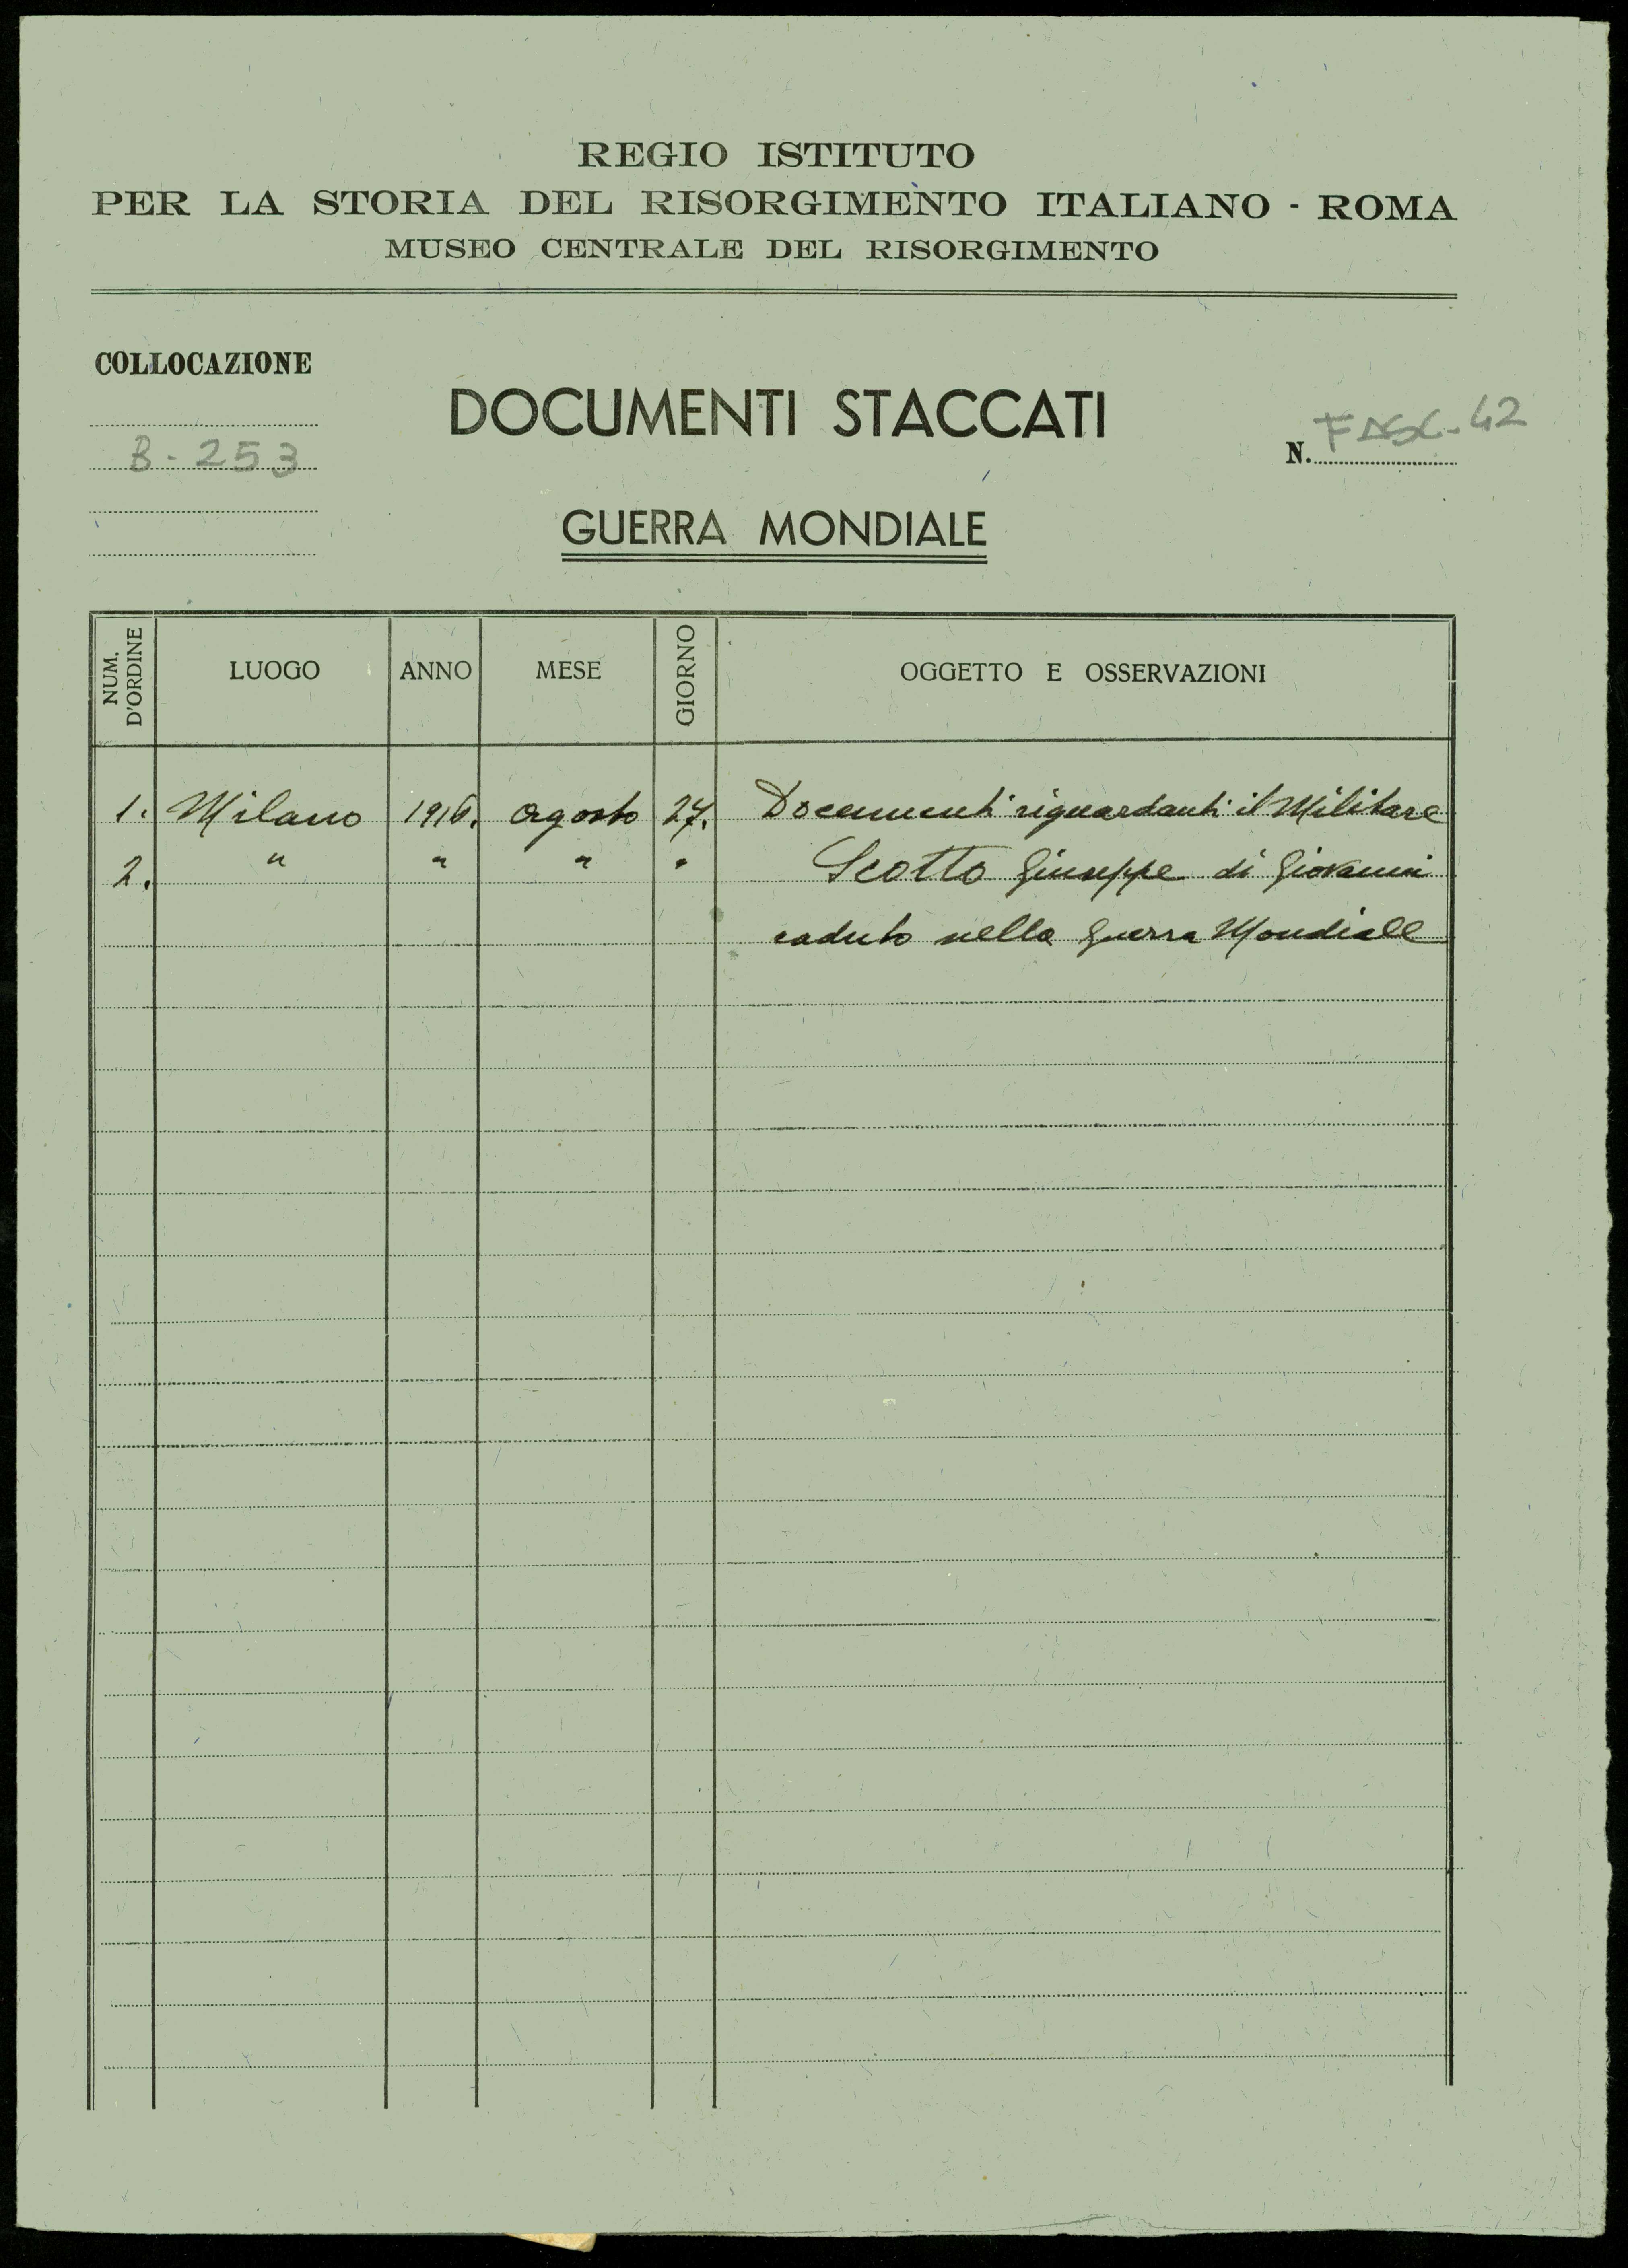 REGIO ISTITUTO
PER LA STORIA DEL RISORGIMENTO ITALIANO - ROMA
MUSEO CENTRALE DEL RISORGIMENTO
COLLOCAZIONE
B - 253
DOCUMENTI STACCATI
N. FASC. 42
GUERRA MONDIALE
NUM. D'ORDINE LUOGO ANNO MESE GIORNO OGGETTO E OSSERVAZIONI
1. Milano 1916. agosto 27. Documenti riguardanti il Militare
2. " " " " Scotto Giuseppe di Giovanni
caduto nella Guerra Mondiale